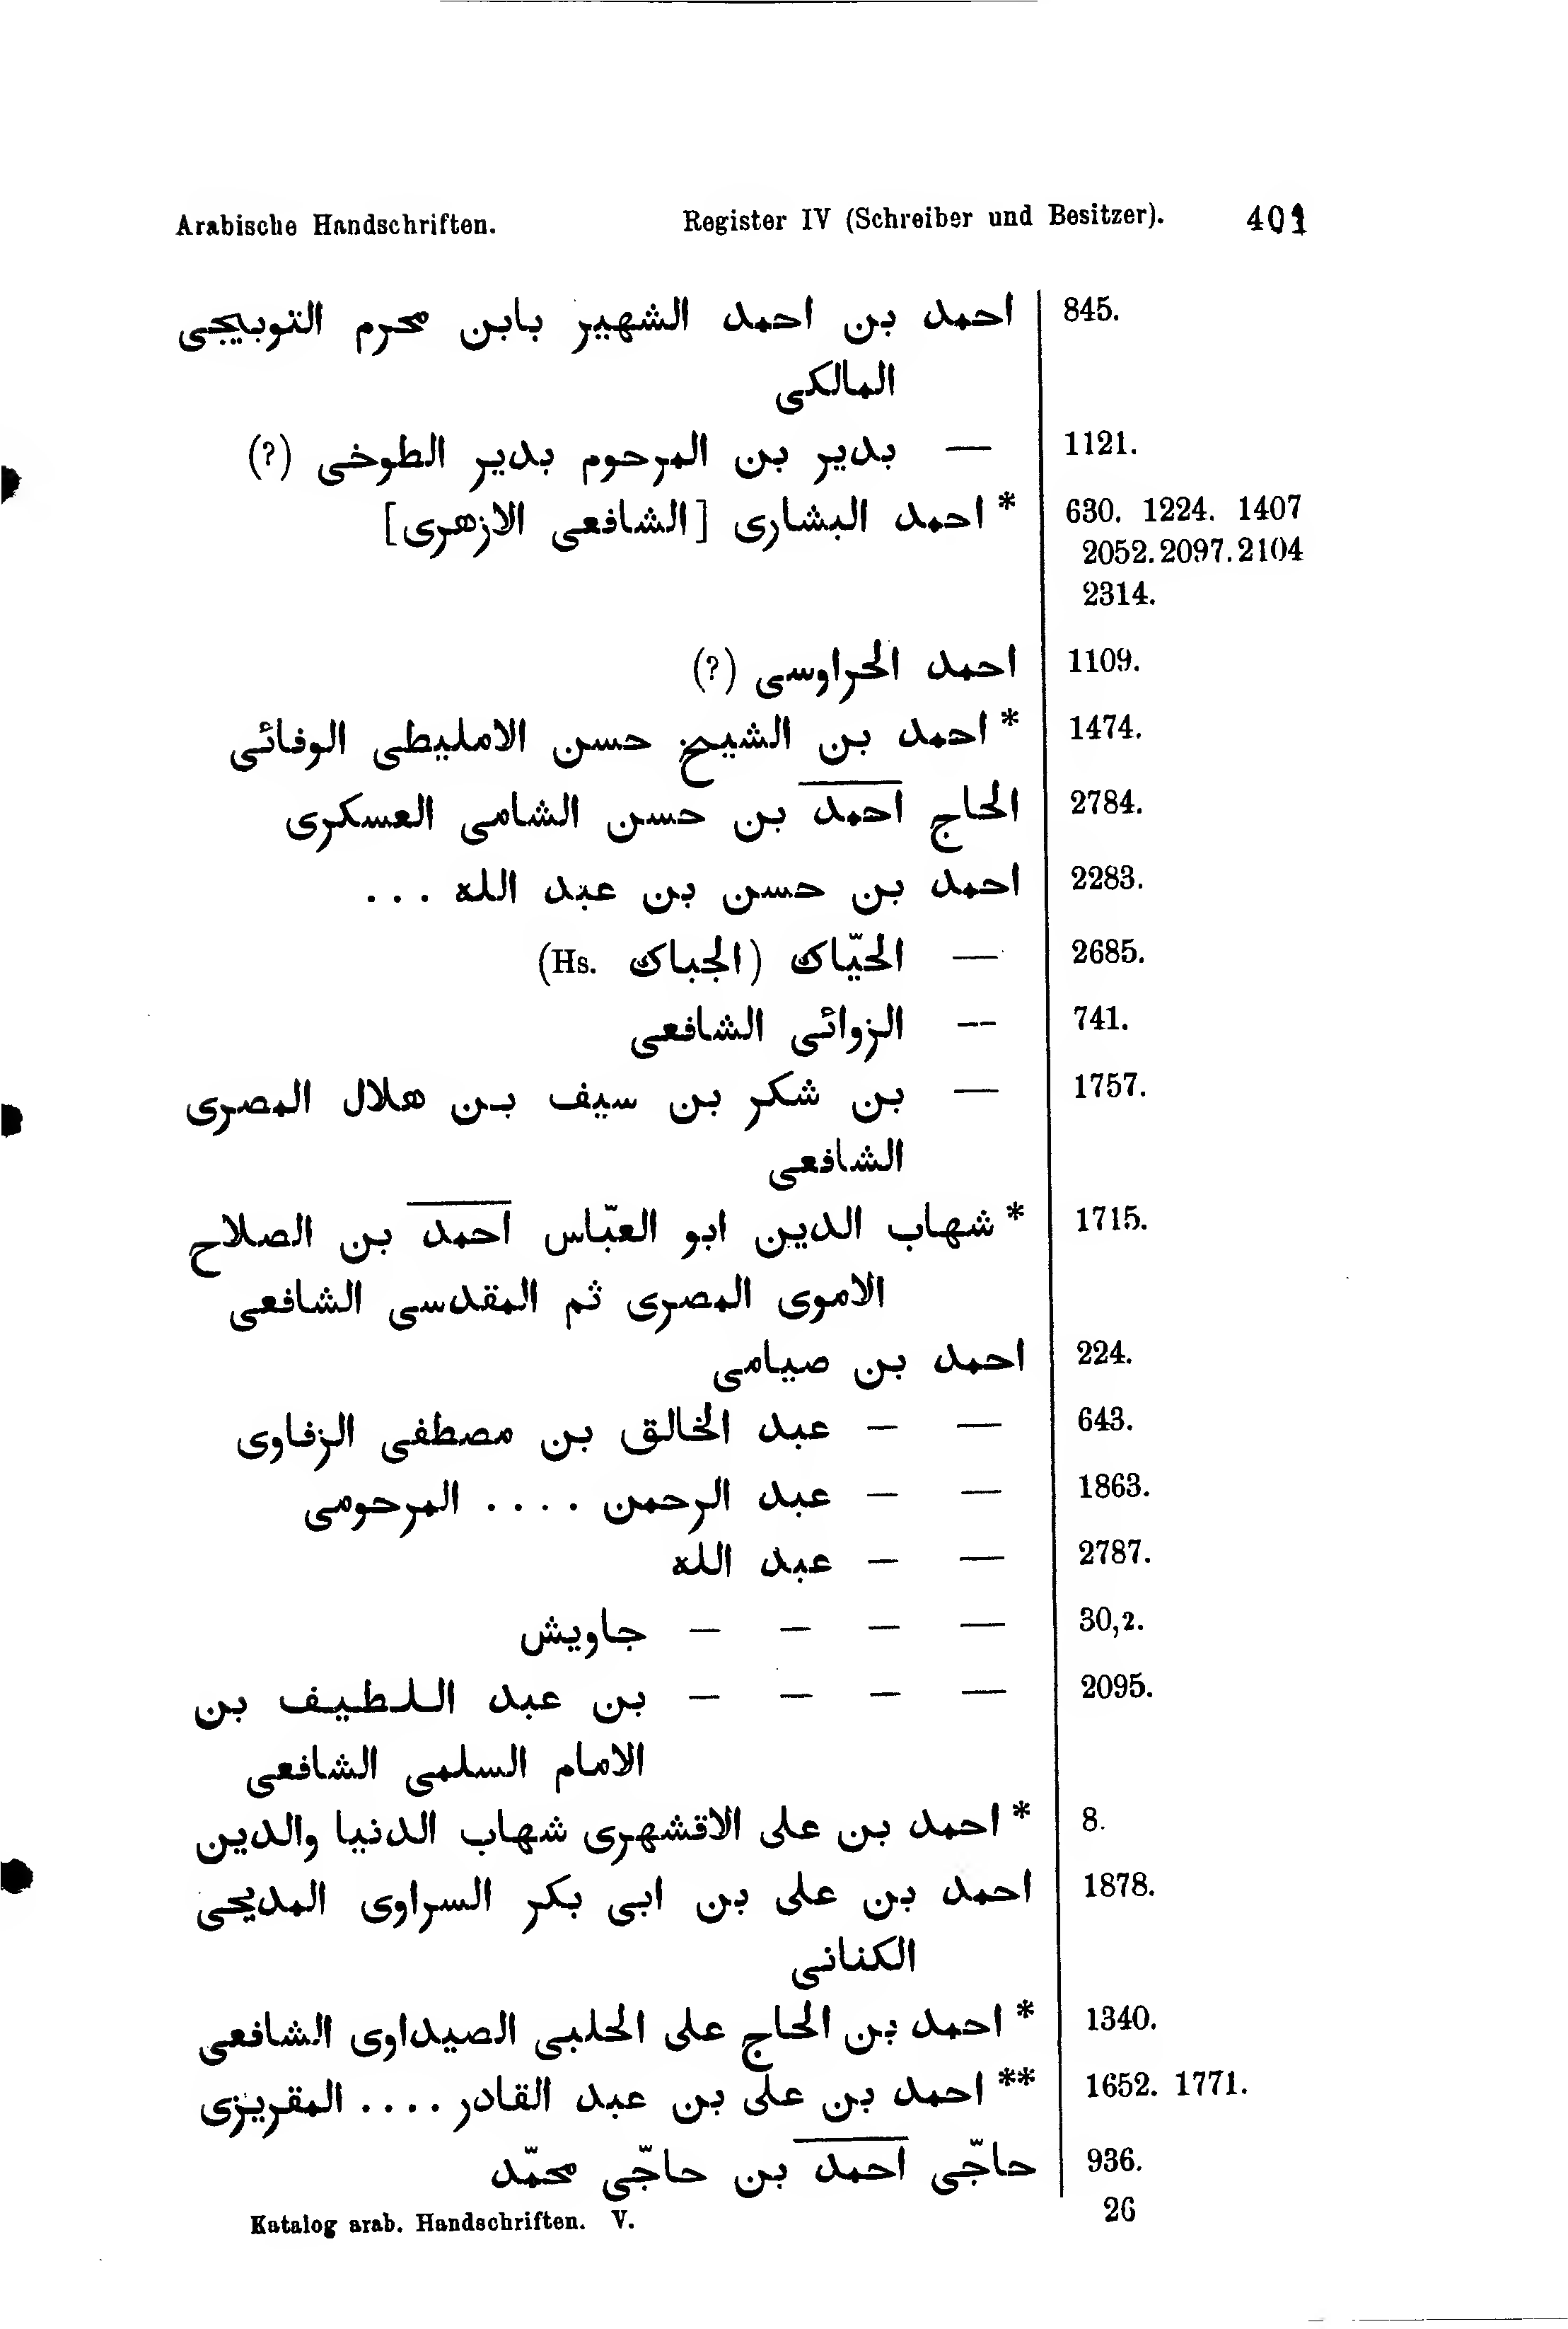 Arabische Handschriften. Register IV (Schreiber und Besitzer). 401
احمد بن احمد الشهير بابن محرم التوبيجى 845.
المالكى
— بدير بن المرحوم بدير الطوخى (?) 1121.
* احمد البشارى [الشافعى الازهرى] 630. 1224. 1407
2052. 2097. 2104
2314.
احمد الحراوسى (?) 1109.
* احمد بن الشيخ حسن الامليطى الوفائى 1474.
الحاج احمد بن حسن الشامى العسكرى 2784.
احمد بن حسن بن عبد الله ... 2283.
— الحيّاك (الجباك Hs.) 2685.
— الزوائى الشافعى 741.
— بن شكر بن سيف بن هلال المصرى 1757.
الشافعى
* شهاب الدين ابو العبّاس احمد بن الصلاح 1715.
الاموى المصرى ثم المقدسى الشافعى
احمد بن صيامى 224.
— — عبد الخالق بن مصطفى الزفاوى 643.
— — عبد الرحمن .... المرحومى 1863.
— — عبد الله 2787.
— — — — جاويش 30,2.
— — — — بن عبد اللطيف بن 2095.
الامام السلمى الشافعى
* احمد بن على الاقشهرى شهاب الدنيا والدين 8.
احمد بن على بن ابى بكر السراوى المديحى 1878.
الكنانى
* احمد بن الحاج على الحلبى الصيداوى الشافعى 1340.
** احمد بن على بن عبد القادر .... المقريزى 1652. 1771.
حاجّى احمد بن حاجّى محمّد 936.
Katalog arab. Handschriften. V. 26